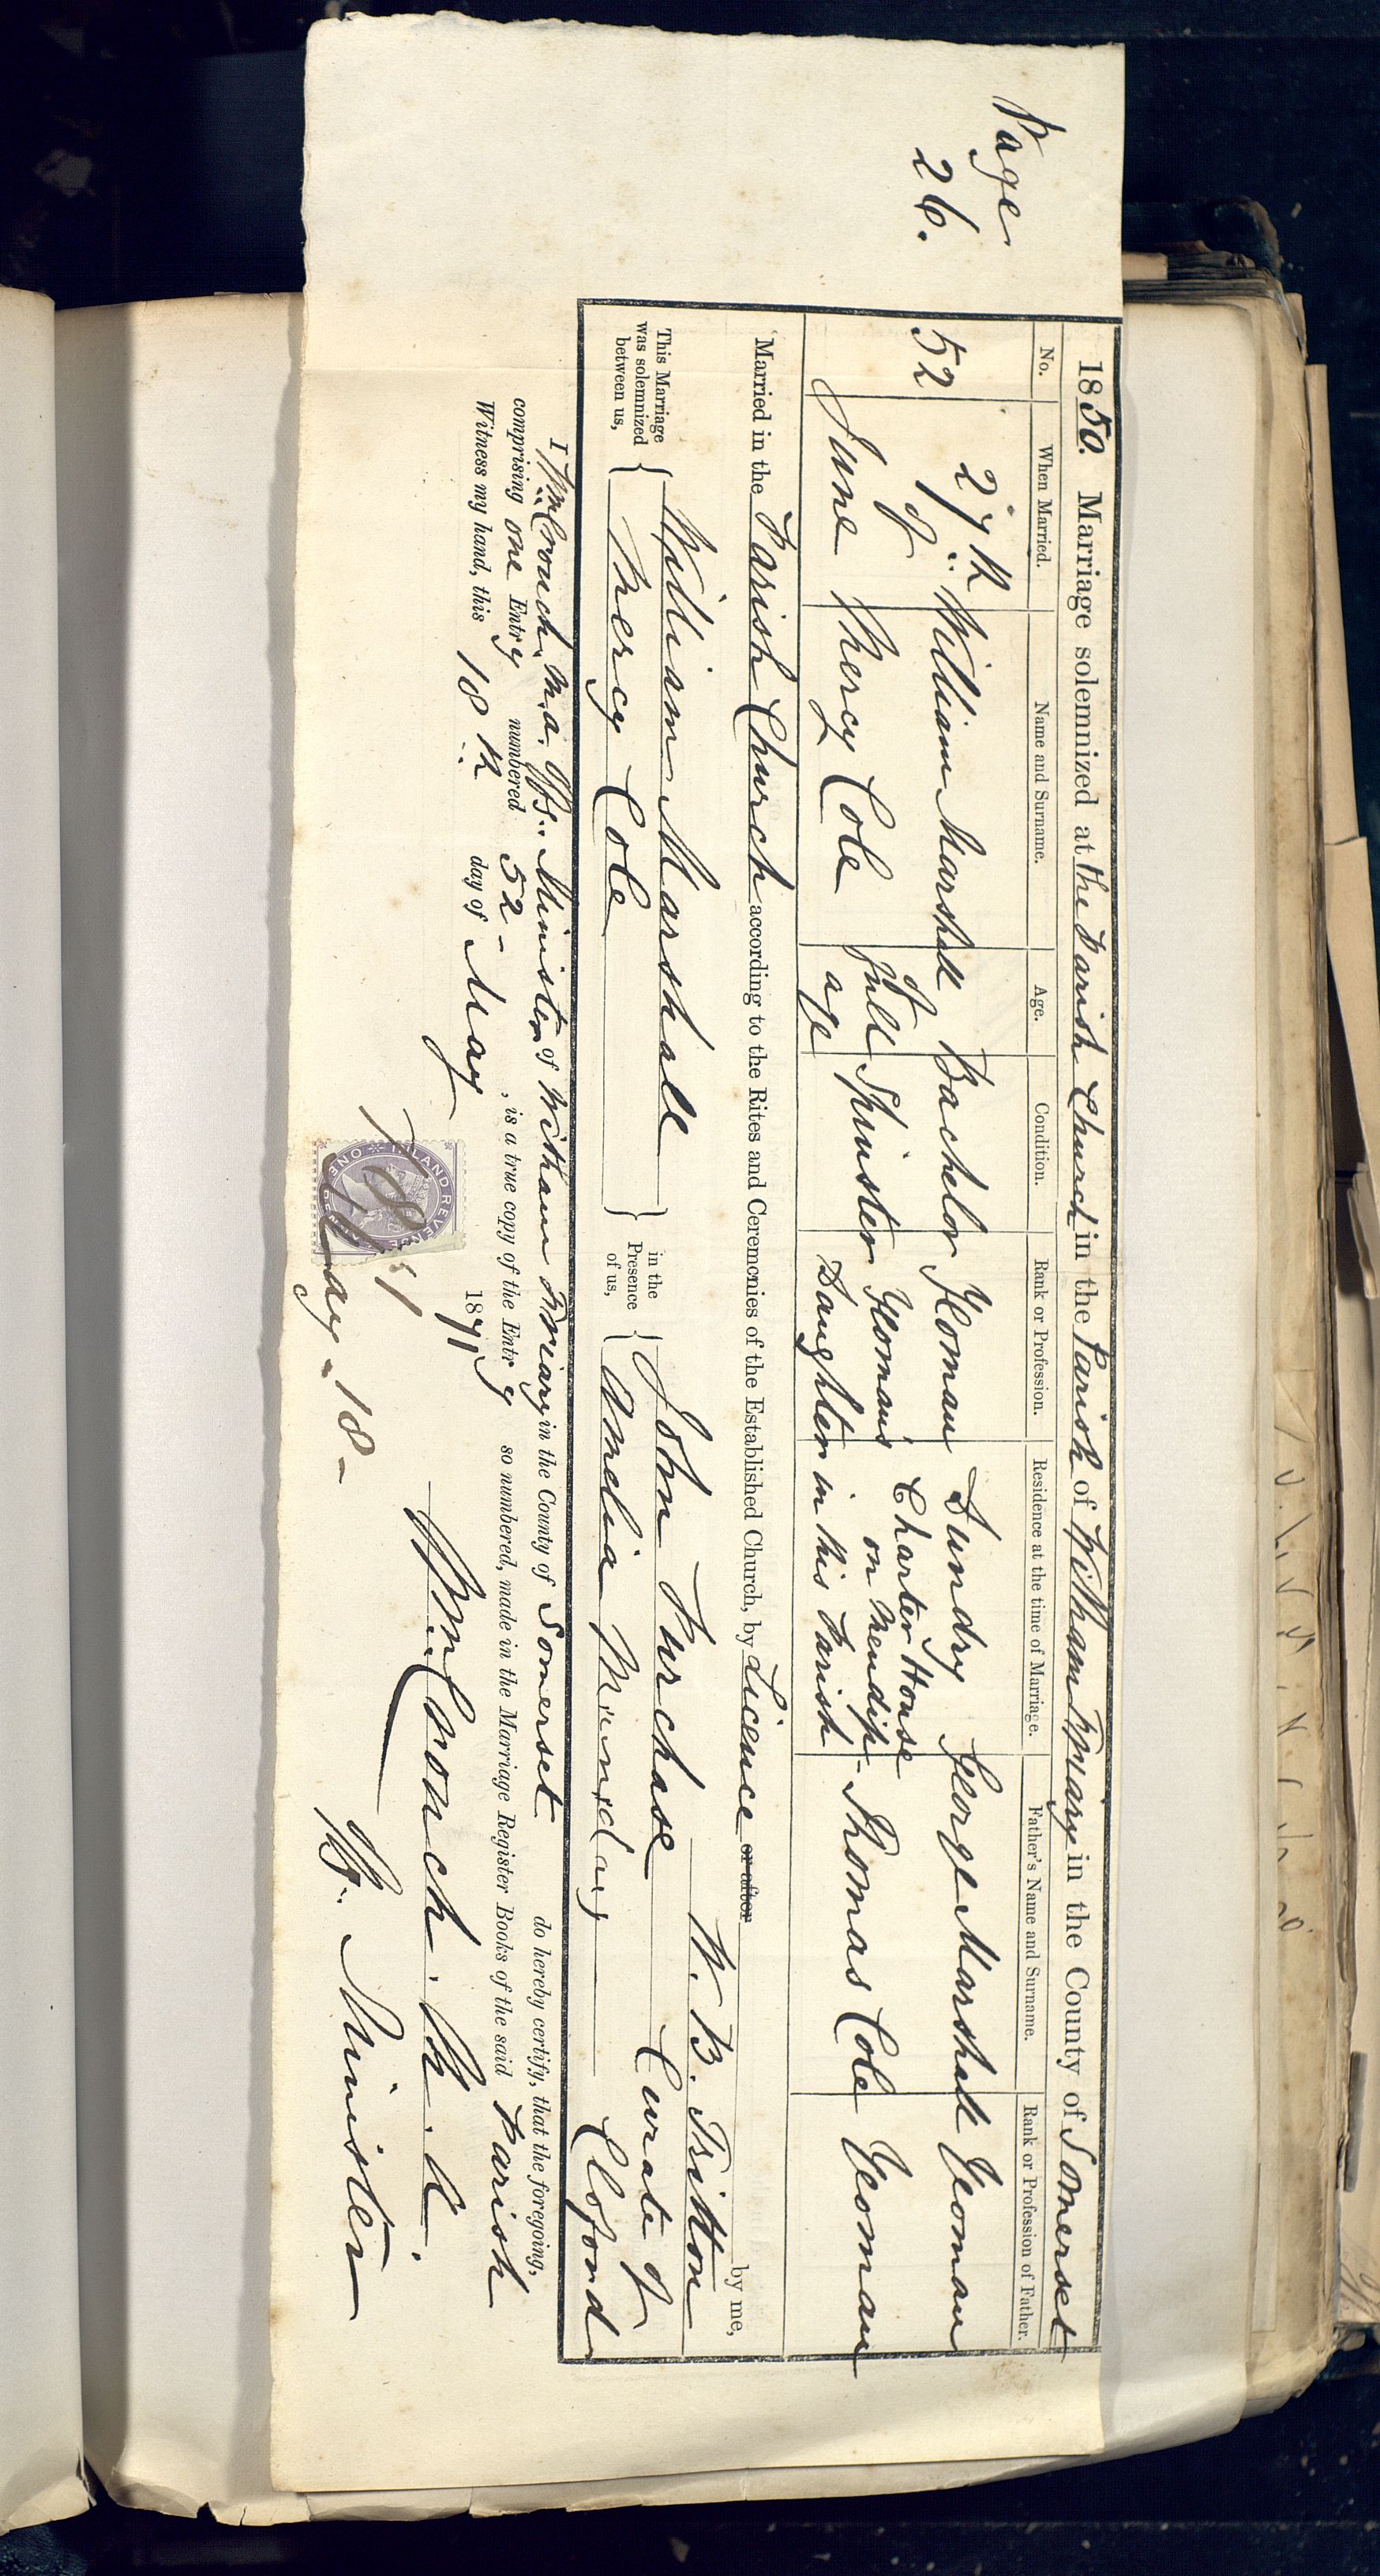 Page
26.
1850. Marriage solemnized at the Parish Church in the Parish of Witham Friary in the County of Somerset
No. When Married. Name and Surname. Age. Condition. Rank or Profession. Residence at the time of Marriage. Father's Name and Surname. Rank or Profession of Father.
52 27th of June William Marshall of full age Bachelor Yeoman Dundry George Marshall Yeoman
Mercy Cole Spinster Yeoman's Daughter Charter House on Mendip in this Parish Thomas Cole Yeoman
Married in the Parish Church according to the Rites and Ceremonies of the Established Church, by Licence or after by me,
W. B. Curate of Cloford
This Marriage was solemnized between us, William Marshall Mercy Cole in the Presence of us, John Purchase Amelia Munday
I Wm Crouch, M.A. Off.. Minister of Witham Friary in the County of Somerset do hereby certify, that the foregoing,
comprising one Entry numbered 52 - , is a true copy of the Entry so numbered, made in the Marriage Register Books of the said Parish
Witness my hand, this 18th day of May 1871
Wm Crouch. M.A.
Off. Minister
INLAND REVENUE
ONE PENNY
May - 18 -